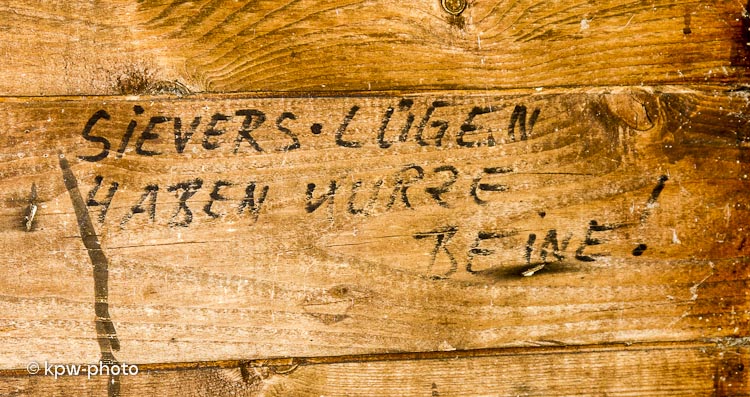 SIEVERS·LÜGEN
HABEN KURZE
BEINE!
© kpw-photo